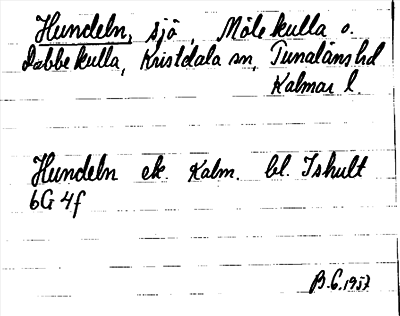 Hundeln, sjö, Målekulla o.
Dabbekulla, Kristdala sn, Tunaläns hd
Kalmar l.
Hundeln ek. Kalm. bl. Ishult
6G 4f
B.G. 1957